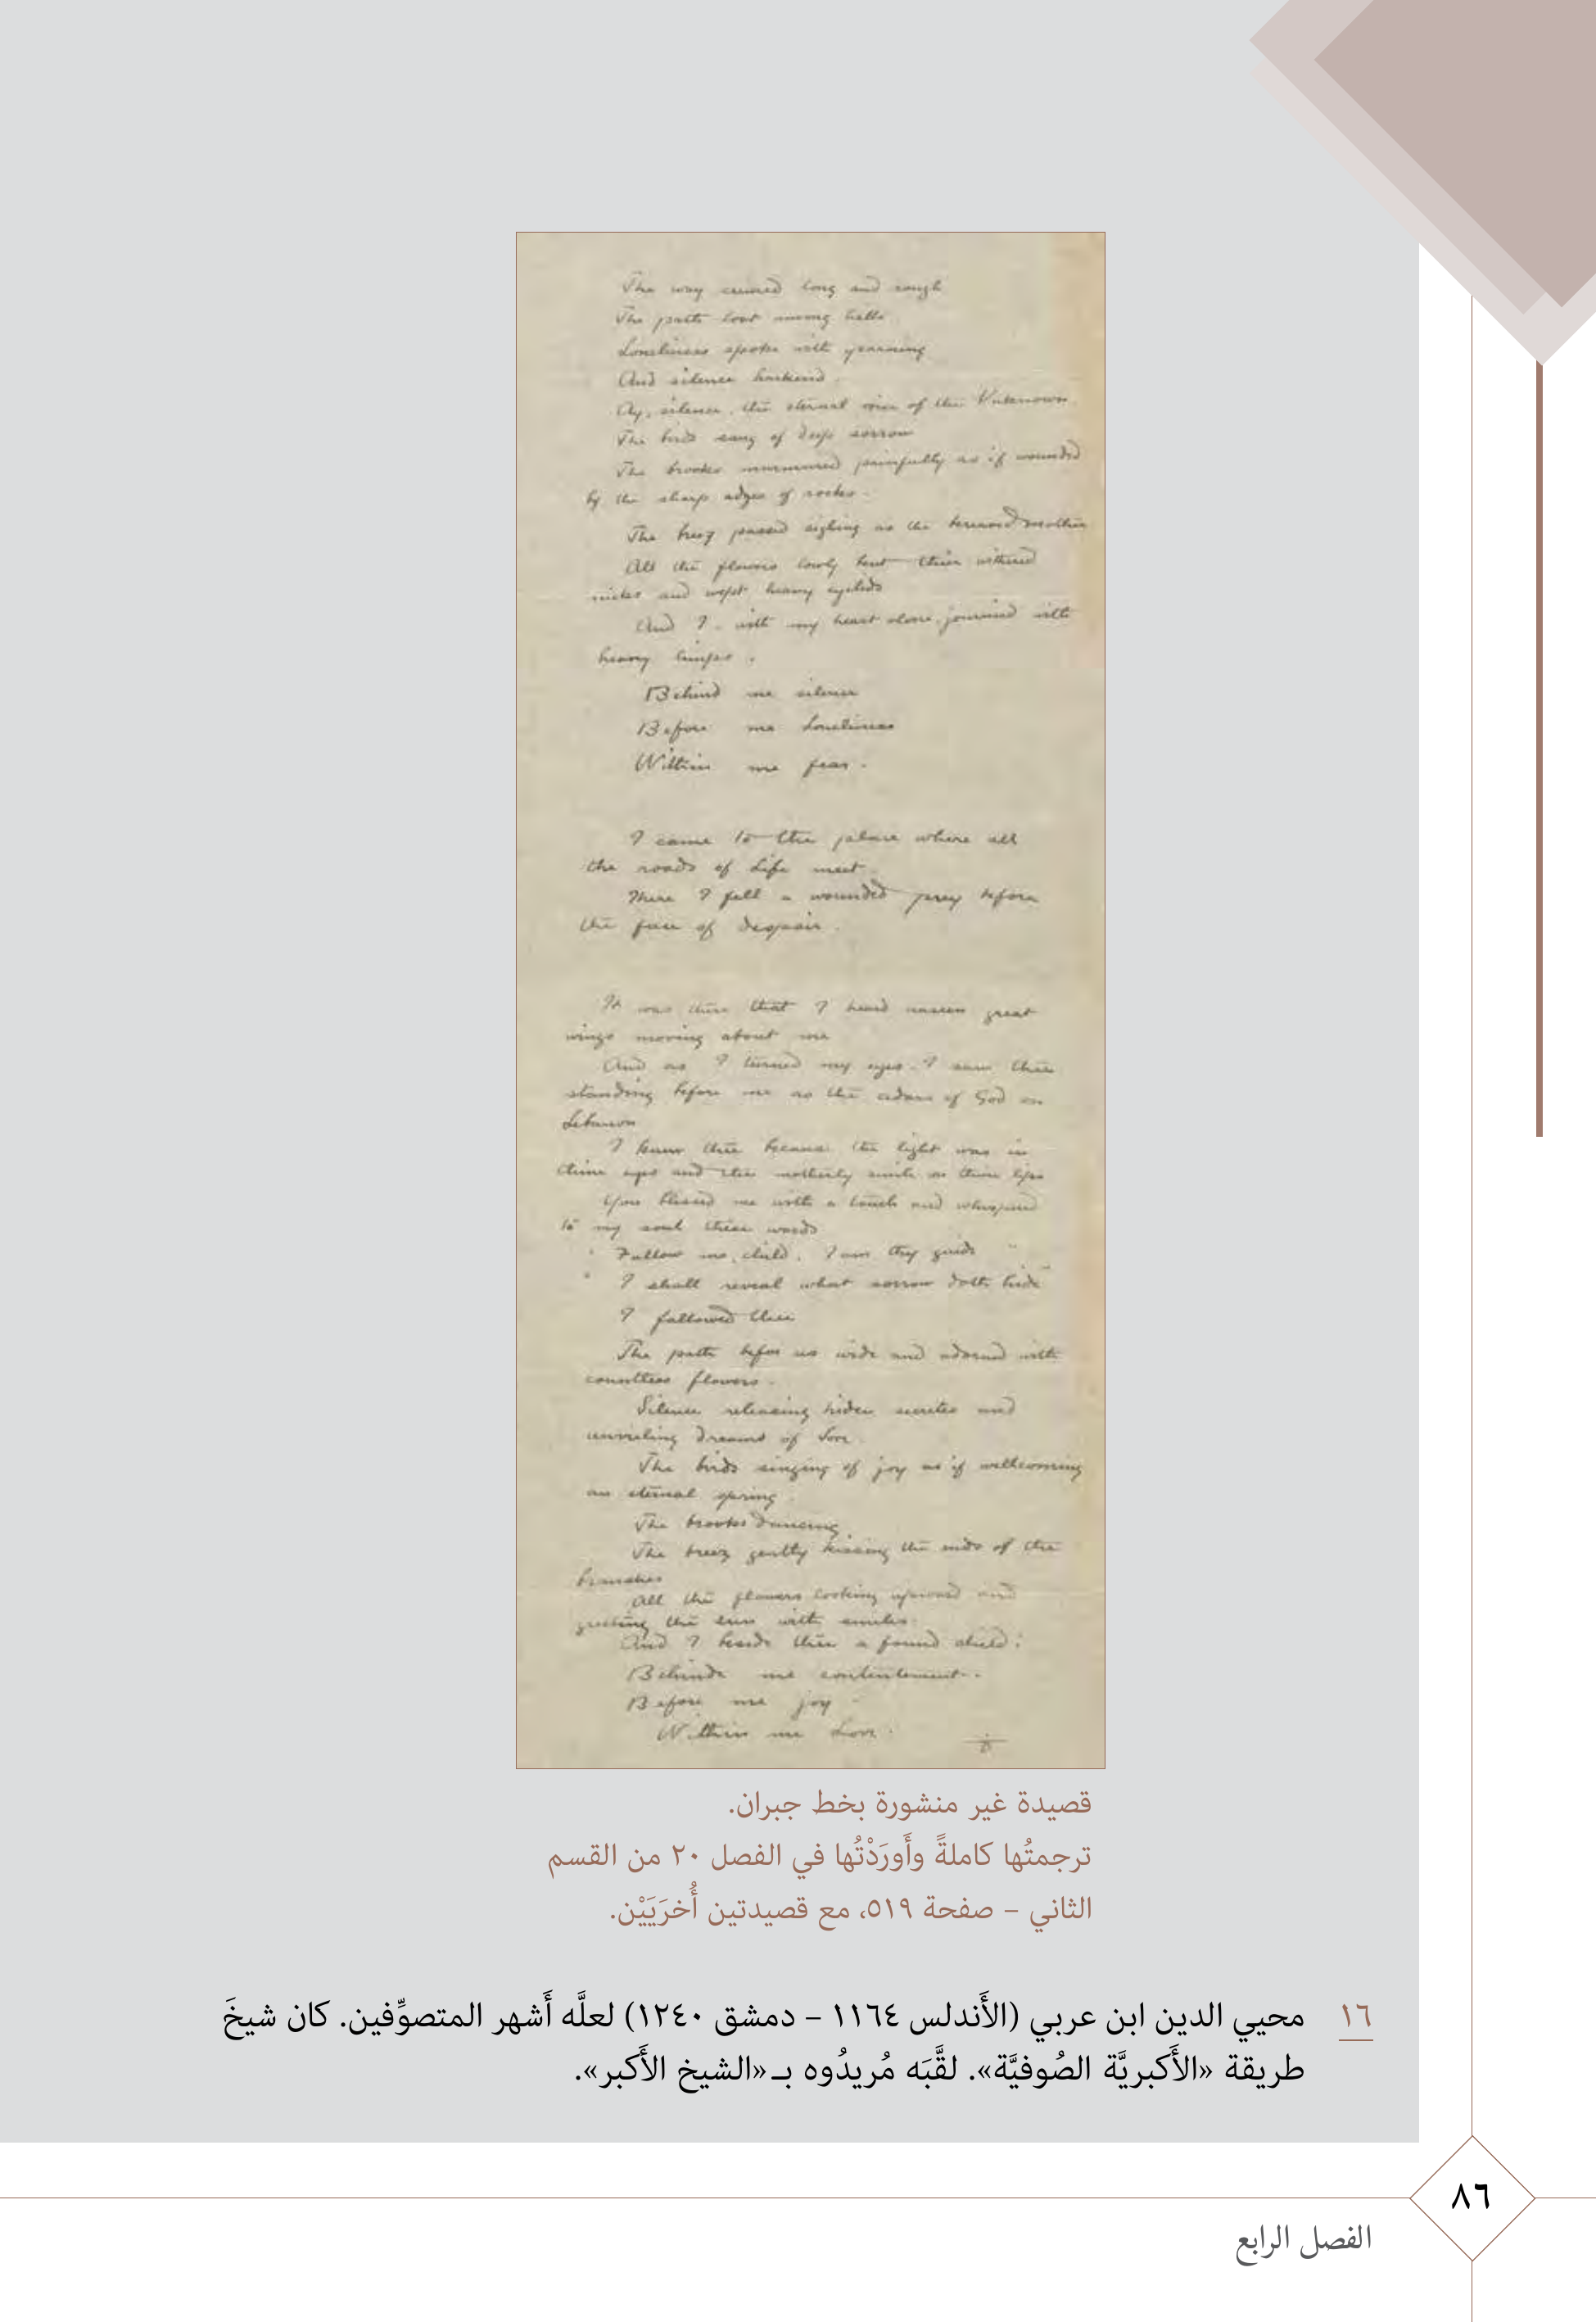 The way seemed long and rough
The path lost among hills.
Loneliness spoke with yearning
And silence harkend.
Ay, silence, the eternal voice of the Unknown.
The birds sang of deep sorrow
The brookes murmured painfully as if wounded
by the sharp edges of rockes.
The breez passed sighing as the bereaved mother
All the flowers lowly bent their withered
neckes and wept heavy eyelids
And I, with my heart alone, journied with
heavy limps.
Behind me silence
Before me Loneliness
Within me fear.
I came to the palace where all
the roads of Life meet.
There I fell a wounded prey before
the face of despair.
It was there that I heard unseen great
wings moving about me
And as I turned my eyes, I saw thee
standing before me as the cedars of God on
Lebanon
I knew thee because the light was in
thine eyes and the motherly smile on thine lips
You blessed me with a touch and whispered
to my soul these words
" Follow me, child. I am thy guide "
" I shall reveal what sorrow doth hide "
I followed thee
The path before us wide and adorned with
countless flowers.
Silence releasing hiden secrites and
unveiling dreams of Love.
The birds singing of joy as if wellcoming
an eternal spring.
The brookes dancing
The breez gently kissing the ends of the
branches
All the flowers looking upward and
greeting the sun with smiles.
And I beside thee a found child:
Behinde me contintement..
Before me joy
Within me Love.
قصيدة غير منشورة بخط جبران.
ترجمتُها كاملةً وأَورَدْتُها في الفصل ٢٠ من القسم
الثاني – صفحة ٥١٩، مع قصيدتين أُخرَيَيْن.
١٦ محيي الدين ابن عربي (الأَندلس ١١٦٤ – دمشق ١٢٤٠) لعلَّه أَشهر المتصوِّفين. كان شيخَ
طريقة «الأَكبريَّة الصُوفيَّة». لقَّبَه مُريدُوه بـ«الشيخ الأَكبر».
٨٦
الفصل الرابع